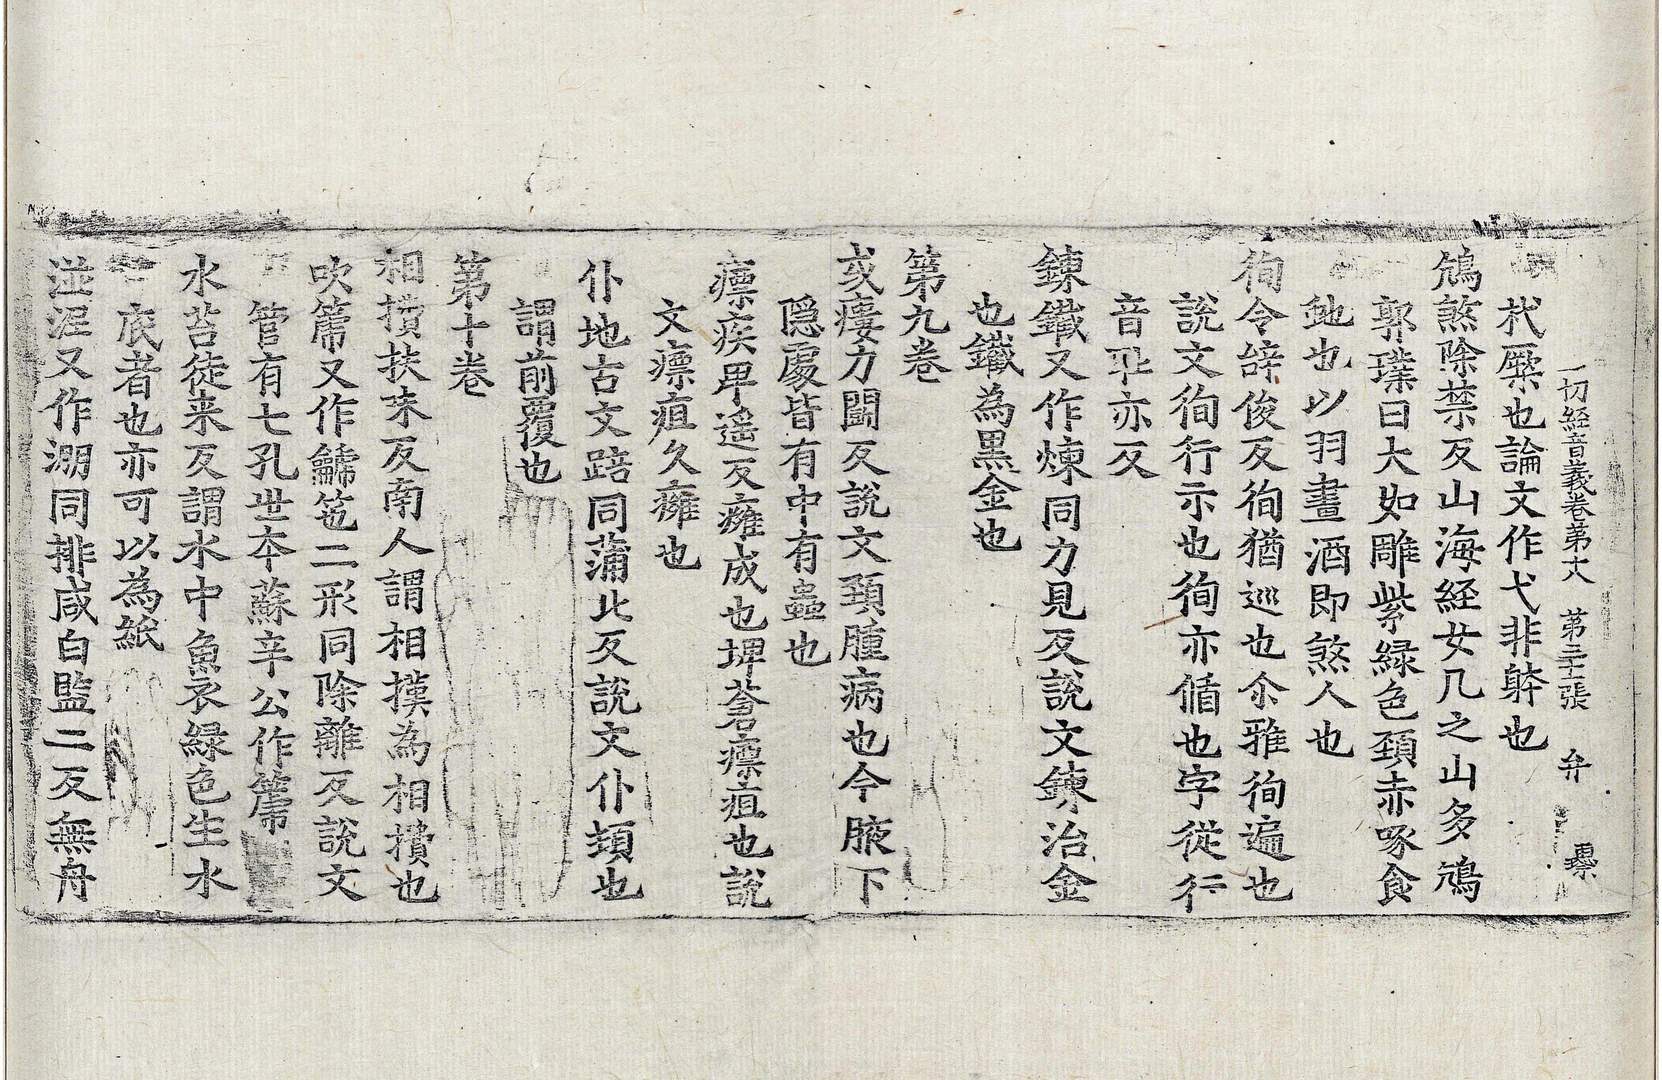 一切經音義卷第十八　第二十張　弁
杙橜也論文作弋非躰也
鴆煞除禁反山海経女几之山多鴆
郭璞曰大如雕紫緑色頚赤啄食
虵也以羽畫酒即煞人也
徇令辝俊反徇猶巡也尒雅徇遍也
說文徇行示也徇亦循也字從行
音亦反
鍊鐵又作煉同力見反說文鍊治金
也鐵為黒金也
第九卷
或瘻力鬪反說文頚腫病也今腋下
隠處皆有中有蟲也
瘭疾卑遥反癰成也埤蒼瘭疽也說
文瘭疽久癰也
仆地古文踣同蒲北反說文仆頓也
謂前覆也
第十卷
相撲扶味反南人謂相撲為相攢也
吹篪又作䶵竾二形同除離反說文
管有七孔世夲蘇辛公作篪
水苔徒来反謂水中魚衣緑色生水
底者也亦可以為紙
湴泥又作淜同排咸白監二反無舟